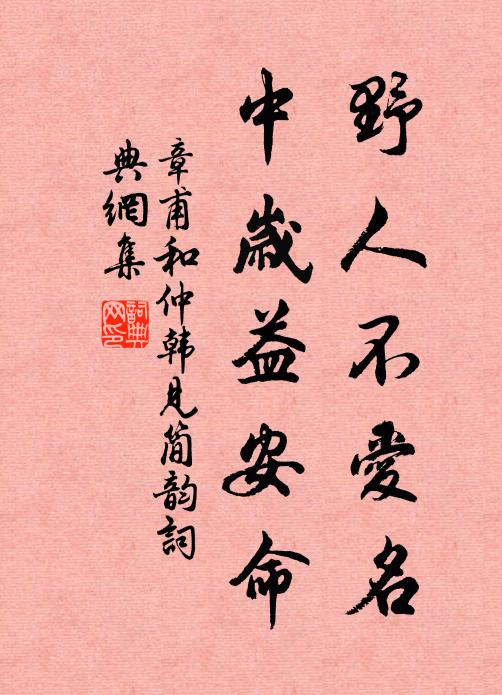 野人不愛名
中歲益安命
章甫和仲韩見简韵詞
典網集
詞典网印